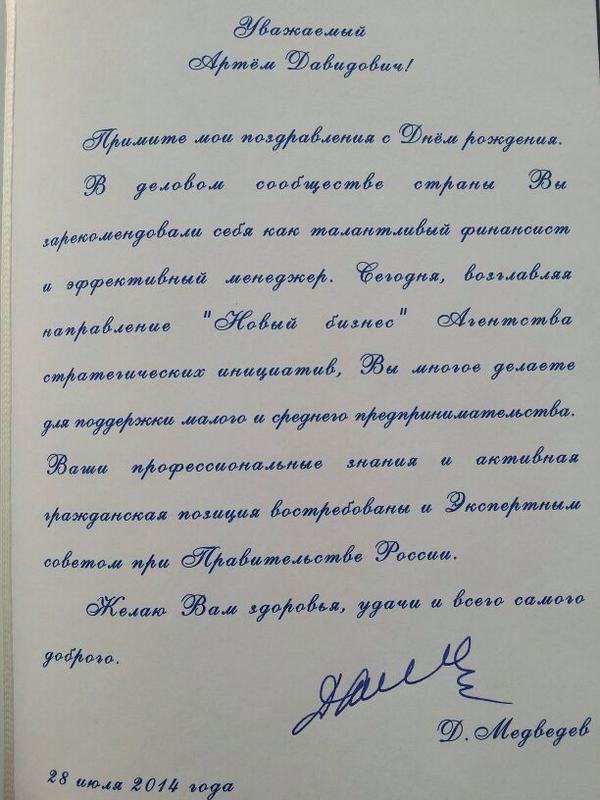 Уважаемый
Артём Давидович!
Примите мои поздравления с Днём рождения.
В деловом сообществе страны Вы
зарекомендовали себя как талантливый финансист
и эффективный менеджер. Сегодня, возглавляя
направление "Новый бизнес" Агентства
стратегических инициатив, Вы многое делаете
для поддержки малого и среднего предпринимательства.
Ваши профессиональные знания и активная
гражданская позиция востребованы и Экспертным
советом при Правительстве России.
Желаю Вам здоровья, удачи и всего самого
доброго.
Д. Медведев
28 июля 2014 года